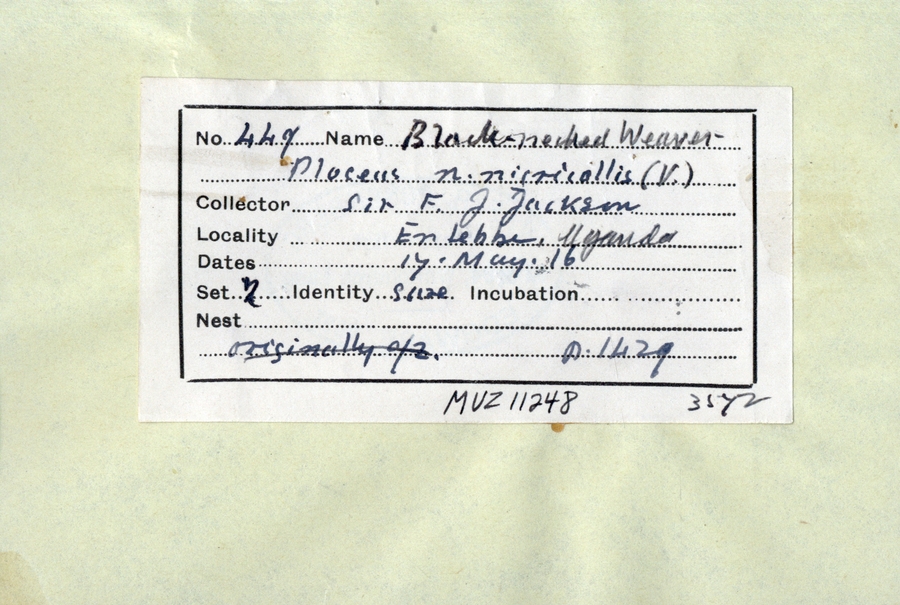 No. 449 Name Black-necked Weaver-
Ploceus n. nigricollis (V.)
Collector Sir F. J. Jackson
Locality Entebbe, Uganda
Dates 17. May. 16
Set 2 Identity Sure. Incubation
Nest
originally c/2. p. 1429
MUZ 11248 3572